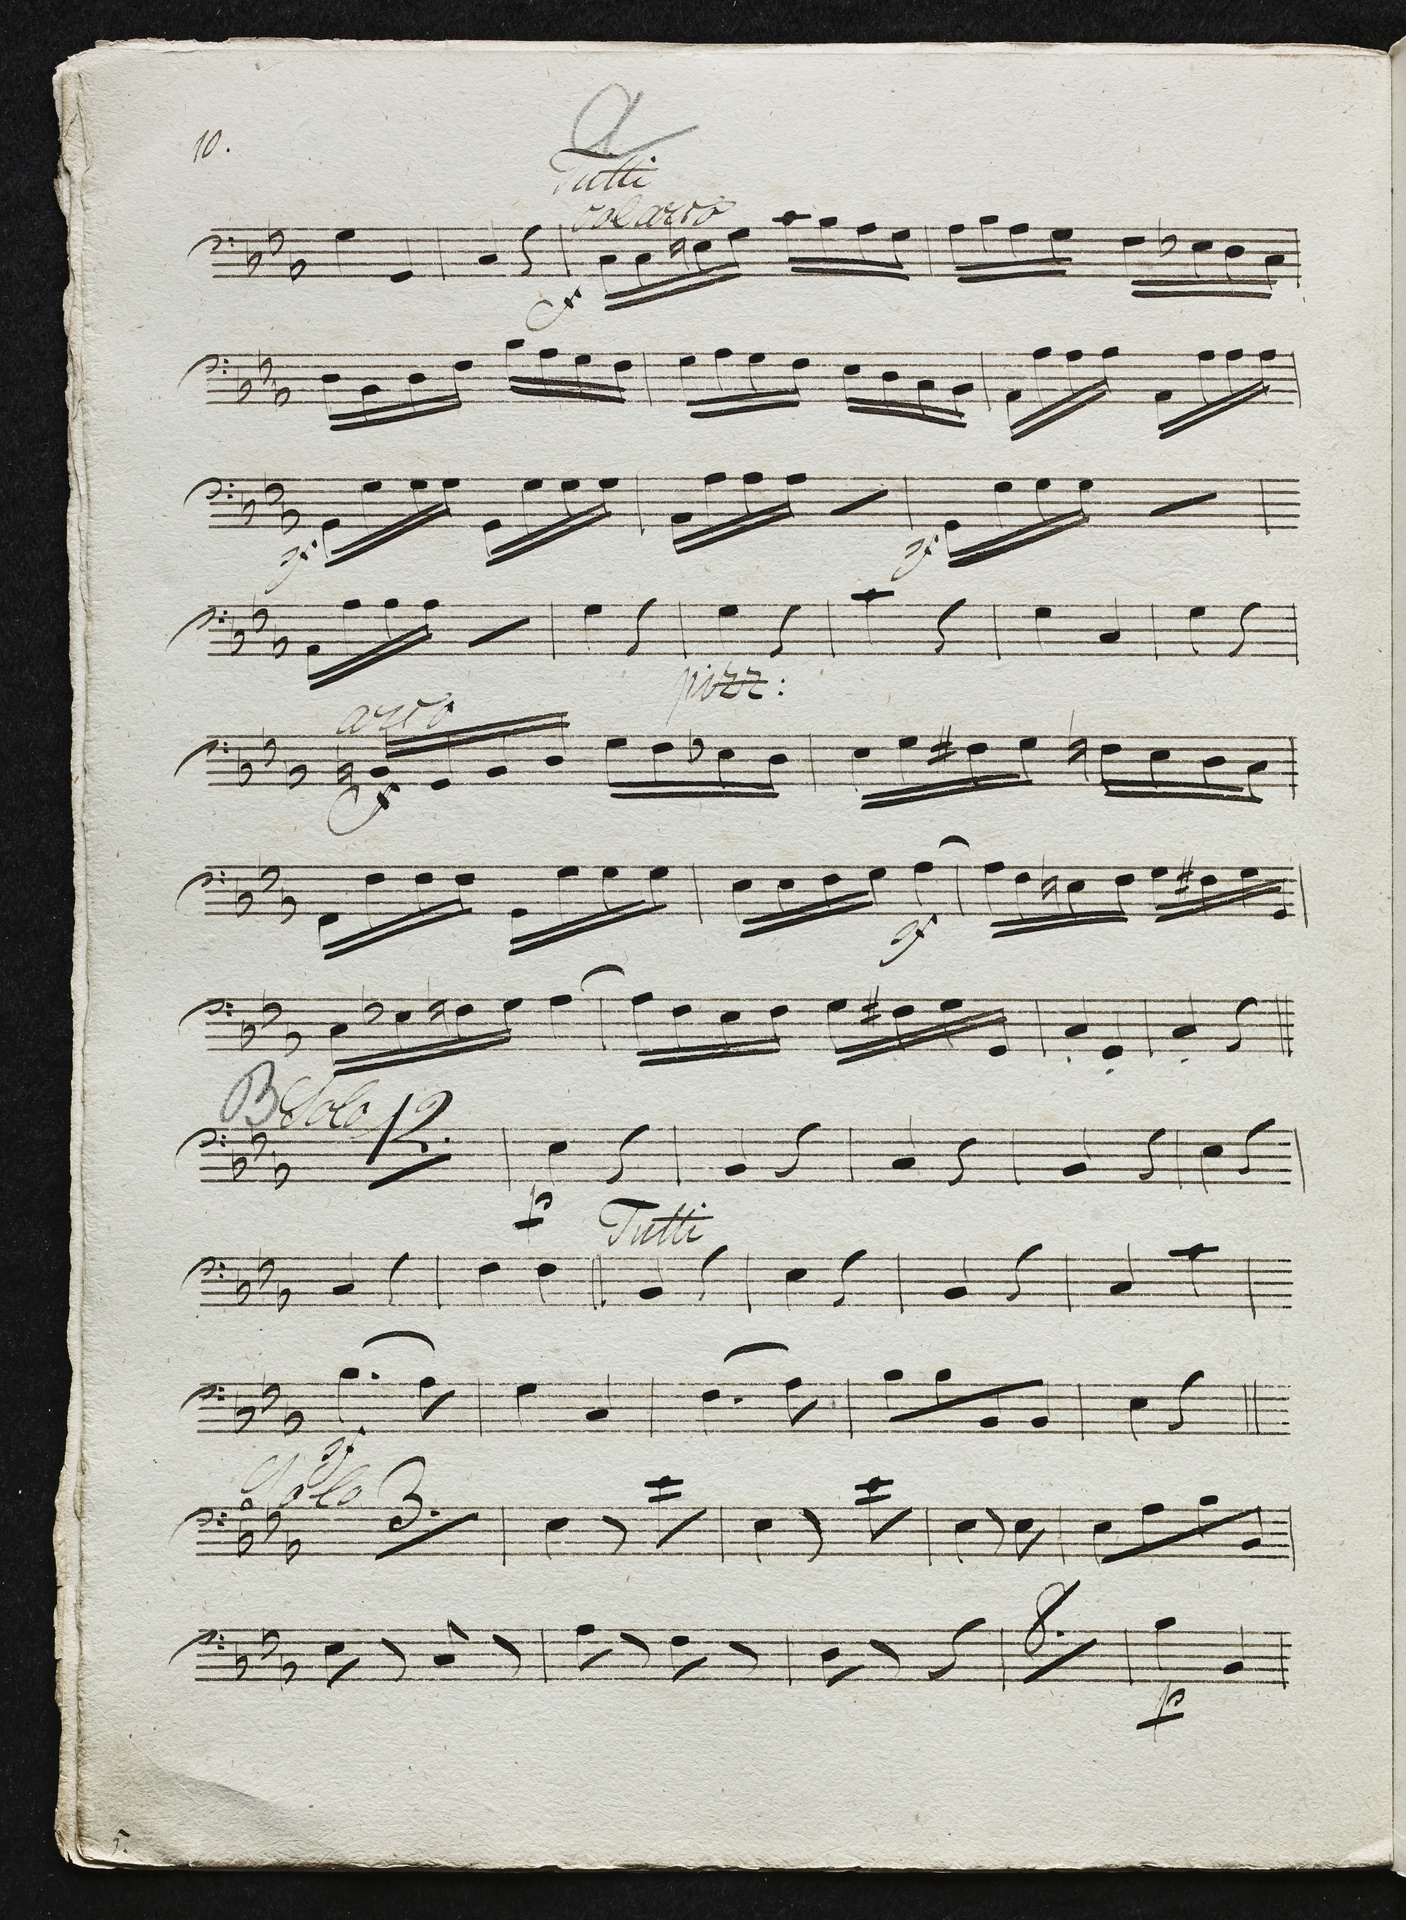 a
10.
Tutti
col arco
f
sf
sf
pizz:
arco
f
sf
B Solo 12.
p
Tutti
sf
Solo 3.
8.
p
5.